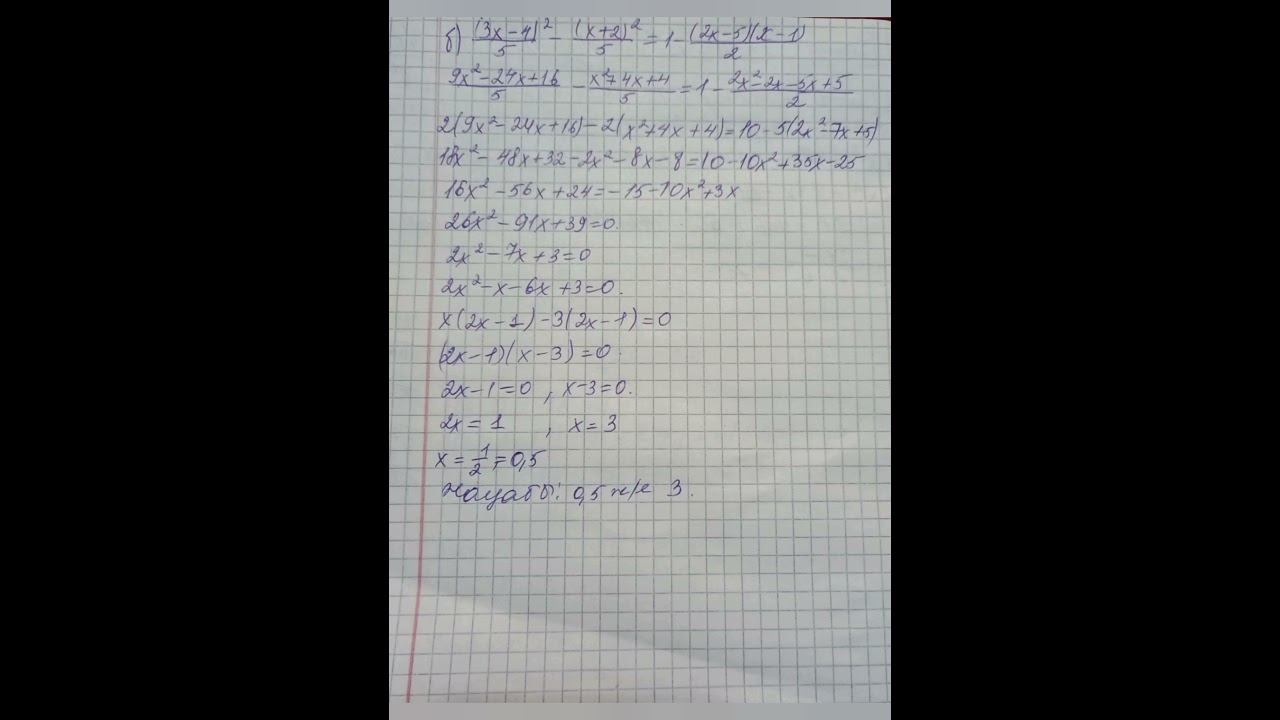 б) (3x-4)²/5 - (x+2)²/5 = 1 - (2x-5)(x-1)/2
9x²-24x+16/5 - x²+4x+4/5 = 1 - 2x²-2x-5x+5/2
2(9x²-24x+16)-2(x²+4x+4)=10-5(2x²-7x+5)
18x²-48x+32-2x²-8x-8=10-10x²+35x-25
16x²-56x+24=-15-10x²+3x
26x²-91x+39=0.
2x²-7x+3=0
2x²-x-6x+3=0.
x(2x-1)-3(2x-1)=0
(2x-1)(x-3)=0.
2x-1=0, x-3=0.
2x=1, x=3
x=1/2=0,5
Жауабы: 0,5 ж/е 3.